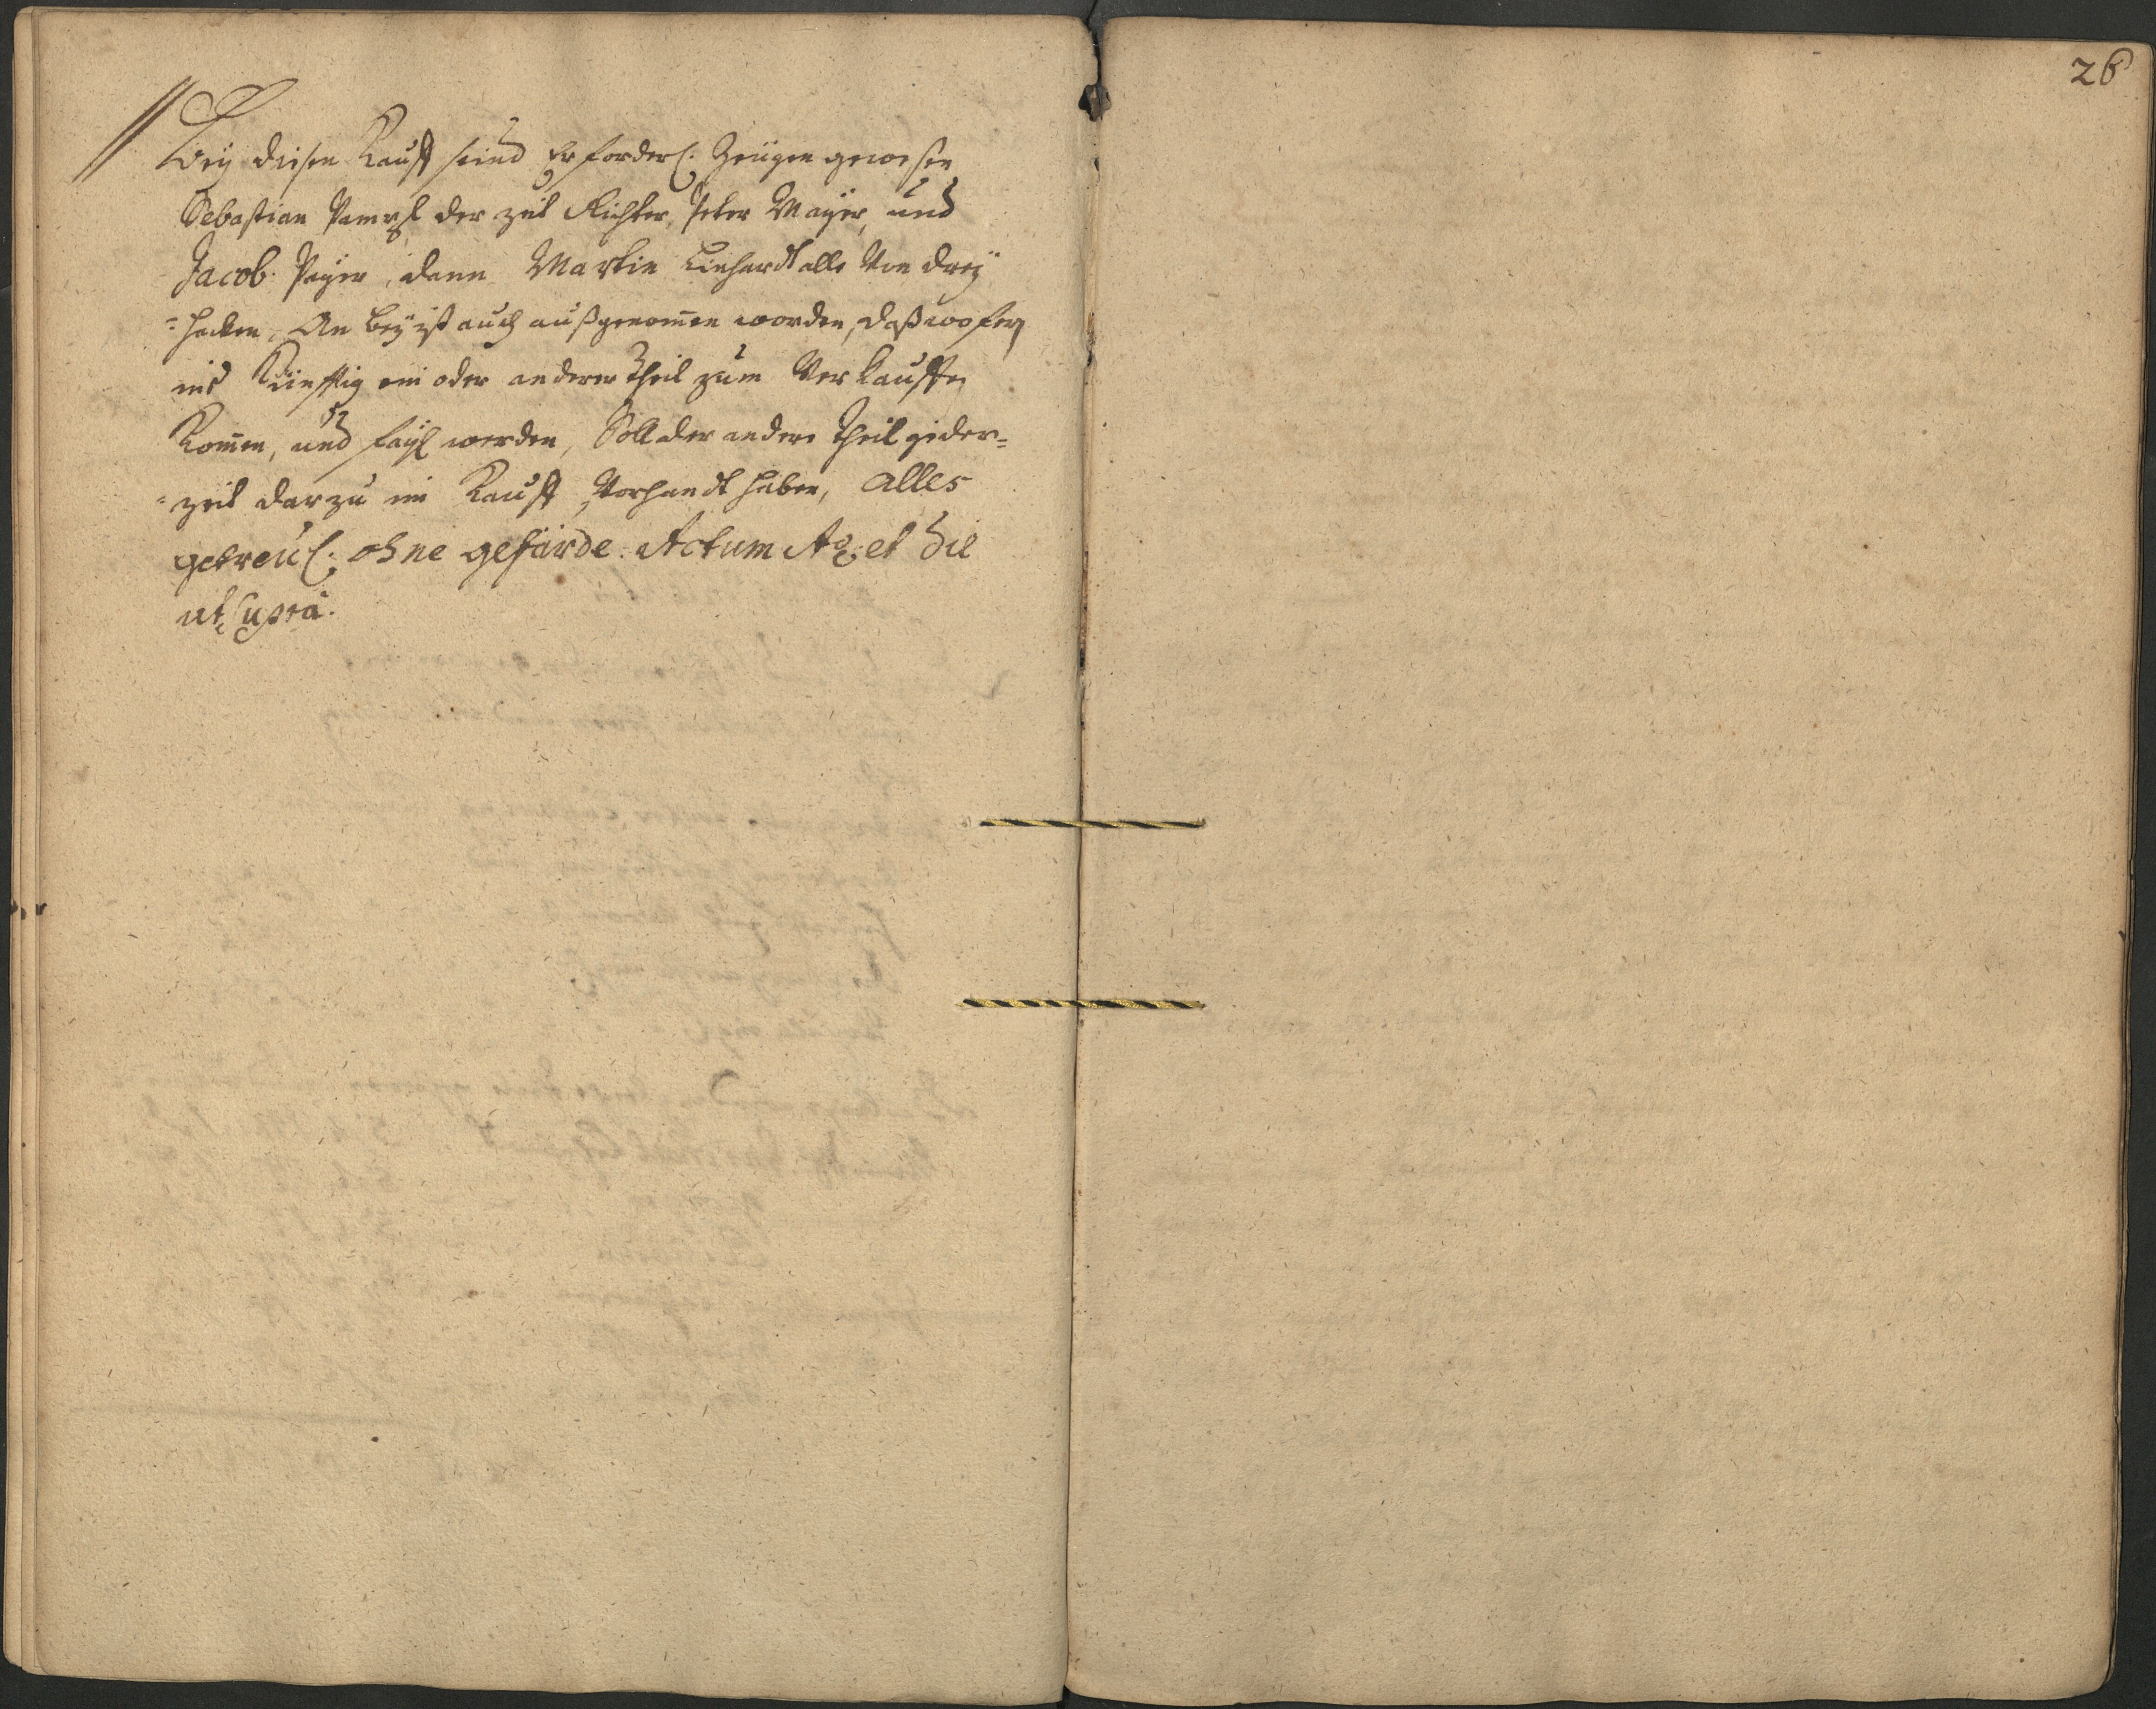 Beÿ diesen Kauff seind Erforderl. Zeügen gewesen
Sebastian der zeit Richter, Peter Mayer, und
Jacob Payer, dann Martin Linhardt alle Von Dreÿ
=hacken, An beÿ ist auch außgenom̄en worden, daß wofern
ins Künfftig ein oder anderer Theil zum Verkauffen
Kom̄en, und fayl werden, Soll der andere Theil yeder=
=zeit darzu im Kauff, Vorhandt haben, alles
getreül. ohne gefärde. Actum Ao. et Die
ut Supra.
26